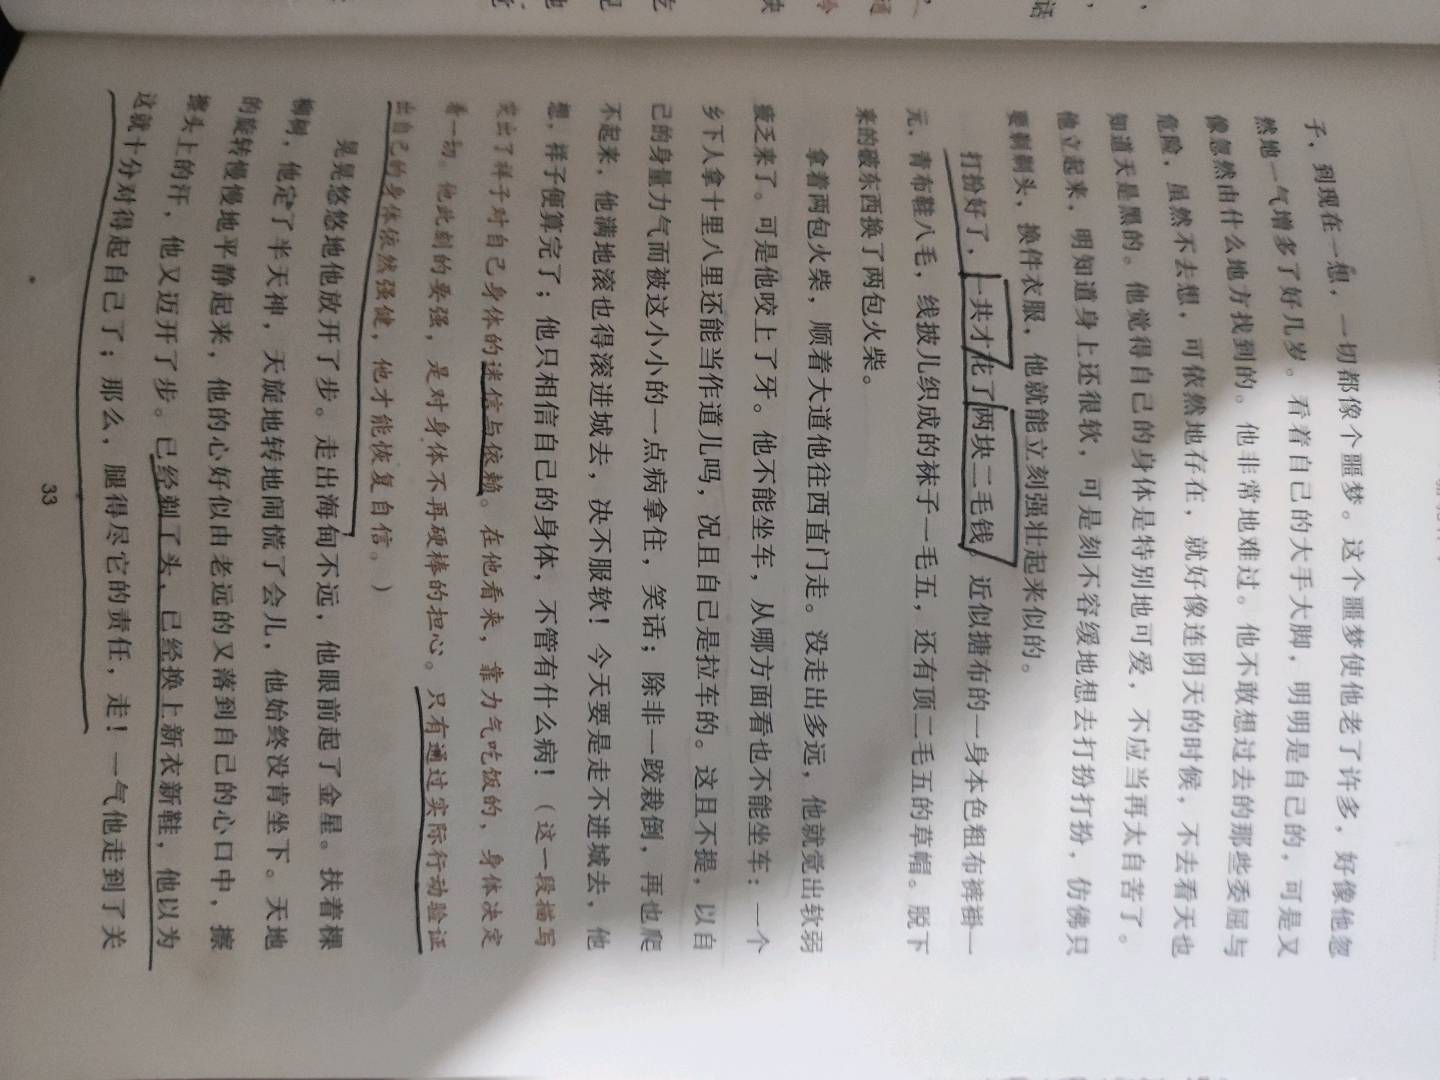 子，到现在一想，一切都像个噩梦。这个噩梦使他老了许多，好像他忽
然地一气增多了好几岁。看着自己的大手大脚，明明是自己的，可是又
像忽然由什么地方找到的。他非常地难过。他不敢想过去的那些委屈与
危险，虽然不去想，可依然地存在，就好像连阴天的时候，不去看天也
知道天是黑的。他觉得自己的身体是特别地可爱，不应当再太自苦了。
他立起来，明知道身上还很软，可是刻不容缓地想去打扮打扮，仿佛只
要剃剃头，换件衣服，他就能立刻强壮起来似的。
打扮好了，一共才花了两块二毛钱。近似搪布的一身本色粗布裤褂一
元，青布鞋八毛，线披儿织成的袜子一毛五，还有顶二毛五的草帽。脱下
来的破东西换了两包火柴。
拿着两包火柴，顺着大道他往西直门走。没走出多远，他就觉出软弱
疲乏来了。可是他咬上了牙。他不能坐车，从哪方面看也不能坐车：一个
乡下人拿十里八里还能当作道儿吗，况且自己是拉车的。这且不提，以自
己的身量力气而被这小小的一点病拿住，笑话；除非一跤栽倒，再也爬
不起来，他满地滚也得滚进城去，决不服软！今天要是走不进城去，他
想，祥子便算完了；他只相信自己的身体，不管有什么病！（这一段描写
突出了祥子对自己身体的迷信与依赖。在他看来，靠力气吃饭的，身体决定
着一切。他此刻的要强，是对身体不再硬棒的担心。只有通过实际行动验证
出自己的身体依然强健，他才能恢复自信。）
晃晃悠悠地他放开了步。走出海甸不远，他眼前起了金星。扶着棵
柳树，他定了半天神，天旋地转地闹慌了会儿，他始终没肯坐下。天地
的旋转慢慢地平静起来，他的心好似由老远的又落到自己的心口中，擦
擦头上的汗，他又迈开了步。已经剃了头，已经换上新衣新鞋，他以为
这就十分对得起自己了；那么，腿得尽它的责任，走！一气他走到了关
33